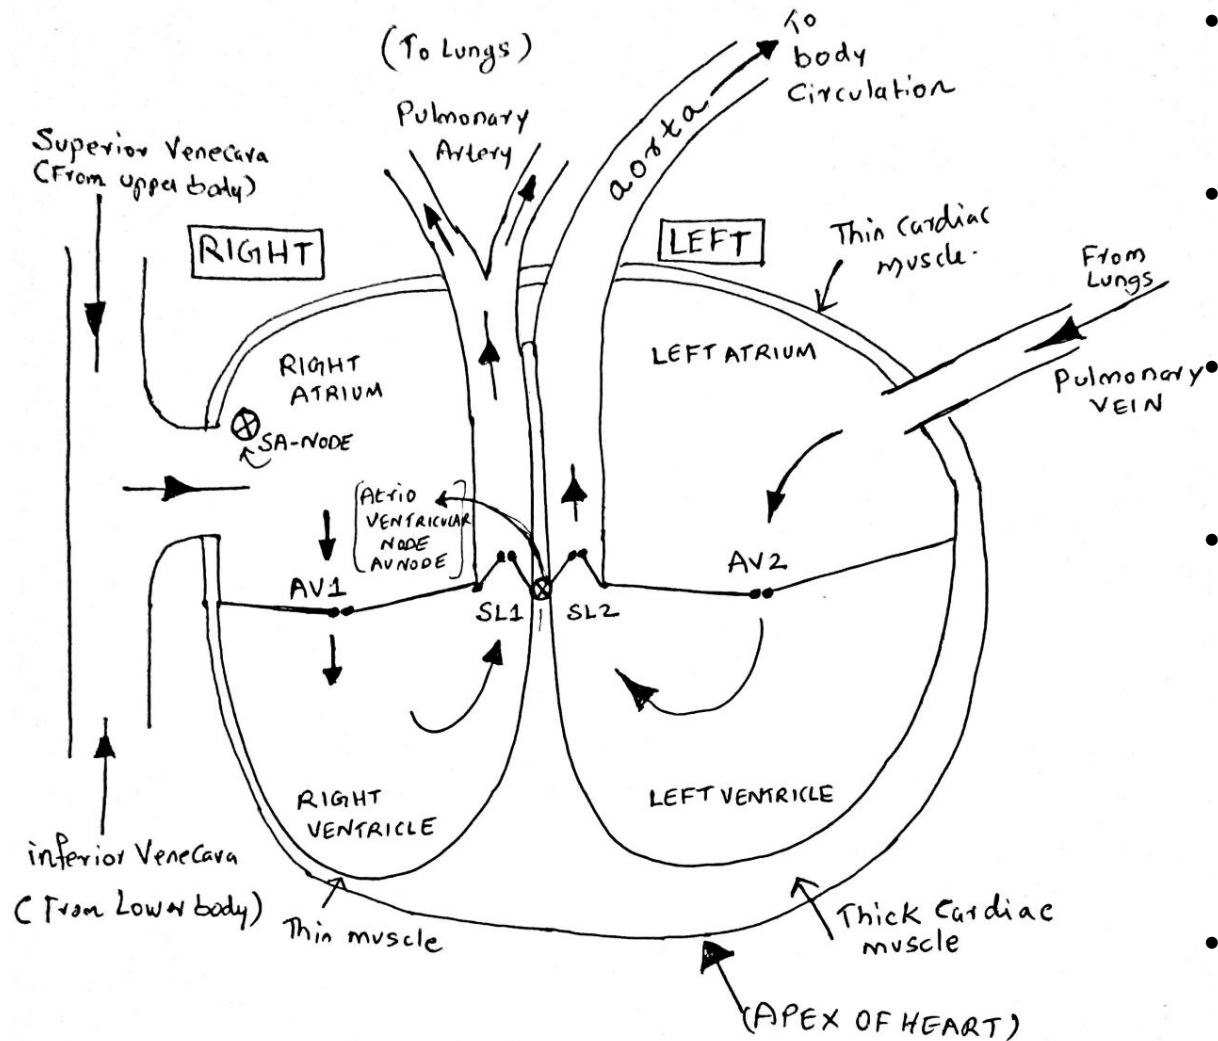 (To Lungs)
Pulmonary
Artery
To
body
Circulation
aorta
Superior Venecava
(From upper body)
RIGHT
LEFT
Thin Cardiac
muscle.
From
Lungs
Pulmonary
VEIN
RIGHT
ATRIUM
LEFT ATRIUM
SA-NODE
Atrio
VENTRICULAR
NODE
AVNODE
AV1
SL1
SL2
AV2
RIGHT
VENTRICLE
LEFT VENTRICLE
inferior Venecava
(From Lower body)
Thin muscle
Thick Cardiac
muscle
(APEX OF HEART)